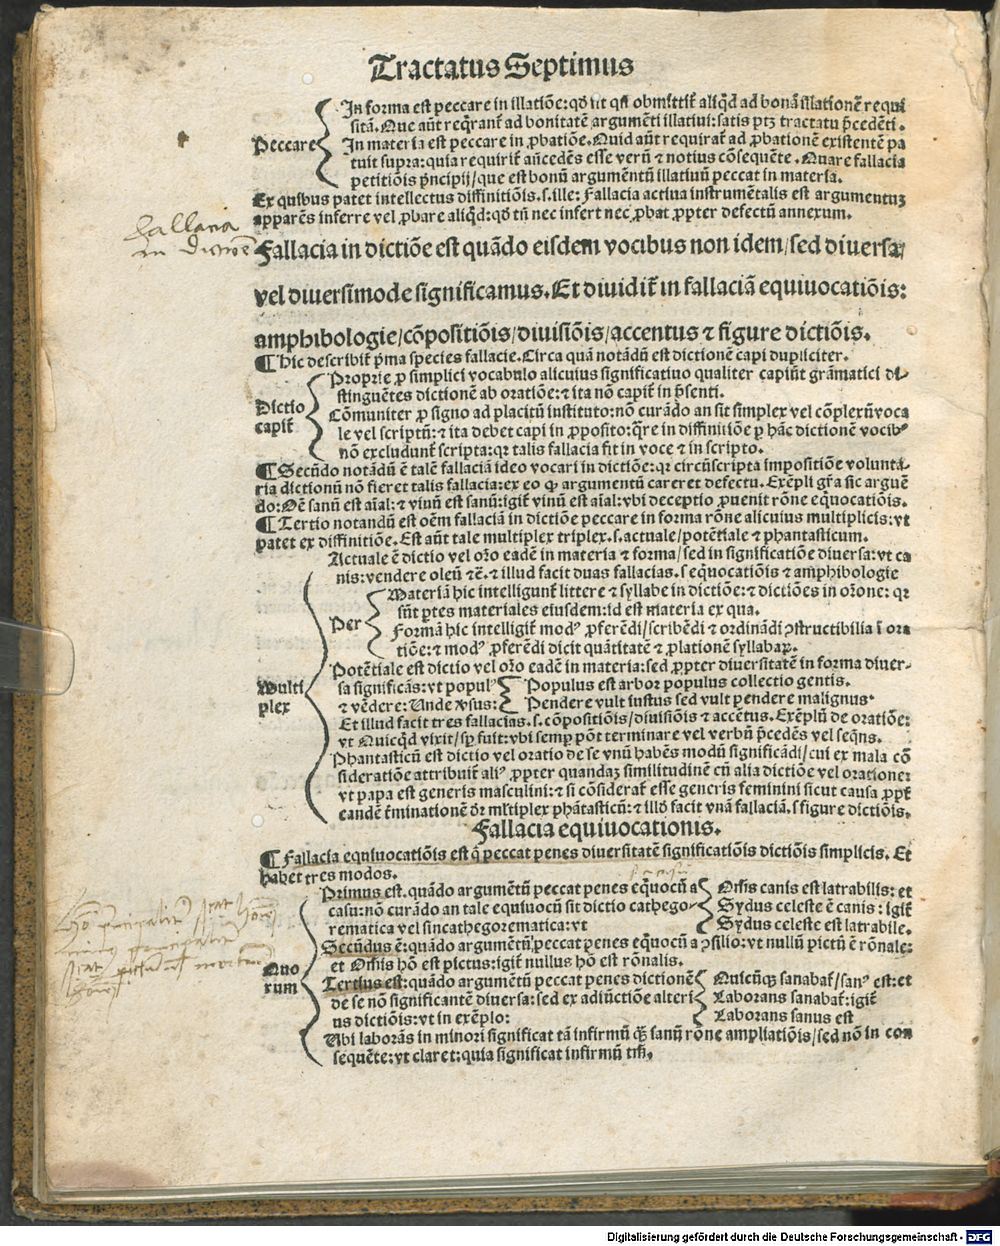 Tractatus Septimus
In forma est peccare in illatiōe: qd̄ fit qn̄ obmittit̄ aliq̄d ad bonā illationē requi
sitā. Que aūt req̄rant̄ ad bonitatē argumēti illatiui: satis ptꝫ tractatu p̄cedēti.
Peccare In materia est peccare in ꝓbatiōe. Quid aūt requirat̄ ad ꝓbationē existentē pa
tuit supra: quia requirit̄ añcedēs esse verū ⁊ notius cōsequēte. Quare fallacia
petitiōis p̄ncipij/que est bonū argumentū illatiuū peccat in materia.
Ex quibus patet intellectus diffinitiōis. s. ille: Fallacia actiua instrumētalis est argumentuꝫ
apparēs inferre vel ꝓbare aliq̄d: qd̄ tn̄ nec infert nec ꝓbat ꝓpter defectū annexum.
Fallacia in dictiōe
Fallacia in dictiōe est quādo eisdem vocibus non idem/sed diuersa/
vel diuersimode significamus. Et diuidit̄ in fallaciā equiuocatiōis:
amphibologie/cōpositiōis/diuisiōis/accentus ⁊ figure dictiōis.
¶ Hic describit̄ p̄ma species fallacie. Circa quā notādū est dictionē capi dupliciter.
Proprie ꝓ simplici vocabulo alicuius significatiuo qualiter capiūt grāmatici di-
stinguētes dictionē ab oratiōe: ⁊ ita nō capit̄ in p̄senti.
Dictio capit̄ Cōmuniter ꝓ signo ad placitū instituto: nō curādo an sit simplex vel cōplexū voca
le vel scriptū: ⁊ ita debet capi in ꝓposito: q̄re in diffinitiōe ꝑ hāc dictionē vocibꝰ
nō excludunt̄ scripta: qꝛ talis fallacia fit in voce ⁊ in scripto.
¶ Secūdo notādū ē talē fallaciā ideo vocari in dictiōe: qꝛ circūscripta impositiōe volunta-
ria dictionū nō fieret talis fallacia: ex eo ꝙ argumentū careret defectu. Exēpli gr̄a sic arguē
do: Oē sanū est aīal: ⁊ vinū est sanū: igit̄ vinū est aīal: vbi deceptio ꝓuenit rōne eq̄uocatiōis.
¶ Tertio notandū est oēm fallaciā in dictiōe peccare in forma rōne alicuius multiplicis: vt
patet ex diffinitiōe. Est aūt tale multiplex triplex. s. actuale/potētiale ⁊ phantasticum.
Actuale ē dictio vel or̄o eadē in materia ⁊ forma/sed in significatiōe diuersa: vt ca
nis: vendere oleū ⁊c̄. ⁊ illud facit duas fallacias. s eq̄uocatiōis ⁊ amphibologie
Materiā hic intelligunt̄ littere ⁊ syllabe in dictiōe: ⁊ dictiōes in or̄one: qꝛ
Per sūt ꝑtes materiales eiusdem: id est materia ex qua.
Formā hic intelligit̄ modꝰ ꝓferēdi/scribēdi ⁊ ordinādi ↄstructibilia ī ora
tiōe: ⁊ modꝰ ꝓferēdi dicit quātitatē ⁊ ꝓlationē syllabaꝝ.
Potētiale est dictio vel or̄o eadē in materia: sed ꝓpter diuersitatē in forma diuer-
Multi plex sa significās: vt populꝰ Populus est arbor populus collectio gentis.
⁊ vēdere: Unde v̄sus: Pendere vult iustus sed vult pendere malignus.
Et illud facit tres fallacias. s. cōpositiōis/diuisiōis ⁊ accētus. Exēplū de oratiōe:
vt Quicq̄d vixit/sꝑ fuit: vbi semꝑ pōt terminare vel verbū p̄cedēs vel seq̄ns.
Phantasticū est dictio vel oratio de se vnū habēs modū significādi/cui ex mala cō
sideratiōe attribuit̄ aliꝰ ꝓpter quandaꝫ similitudinē cū alia dictiōe vel oratione:
vt papa est generis masculini: ⁊ si cōsiderat̄ esse generis feminini sicut causa ꝓpt̄
eandē t̄minationē dr̄ mltiplex phātasticū: ⁊ illd̄ facit vnā fallaciā. s figure dictiōis.
Fallacia equiuocationis.
¶ Fallacia equiuocatiōis est q̄ peccat penes diuersitatē significatiōis dictiōis simplicis. Et
habet tres modos.
Primus est. quādo argumētū peccat penes eq̄uocū a Om̄is canis est latrabilis: et
casu: nō curādo an tale equiuocū sit dictio cathego- Sydus celeste ē canis: igit̄
rematica vel sincathegorematica: vt Sydus celeste est latrabile.
Secūdus ē: quādo argumētū peccat penes equocū a ↄsilio: vt nullū pictū ē rōnale:
Quo rum et Om̄is hō est pictus: igit̄ nullus hō est rōnalis.
Tertius est: quādo argumētū peccat penes dictionē Quicūqꝫ sanabat̄/sanꝰ est: et
de se nō significantē diuersa: sed ex adiūctiōe alteri Laborans sanabat̄: igit̄
us dictiōis: vt in exēplo: Laborans sanus est
Ubi laborās in minori significat tā infirmū qꝫ sanū rōne ampliatiōis/sed nō in con
sequēte: vt claret: quia significat infirmū tm̄.
Digitalisierung gefördert durch die Deutsche Forschungsgemeinschaft - DFG